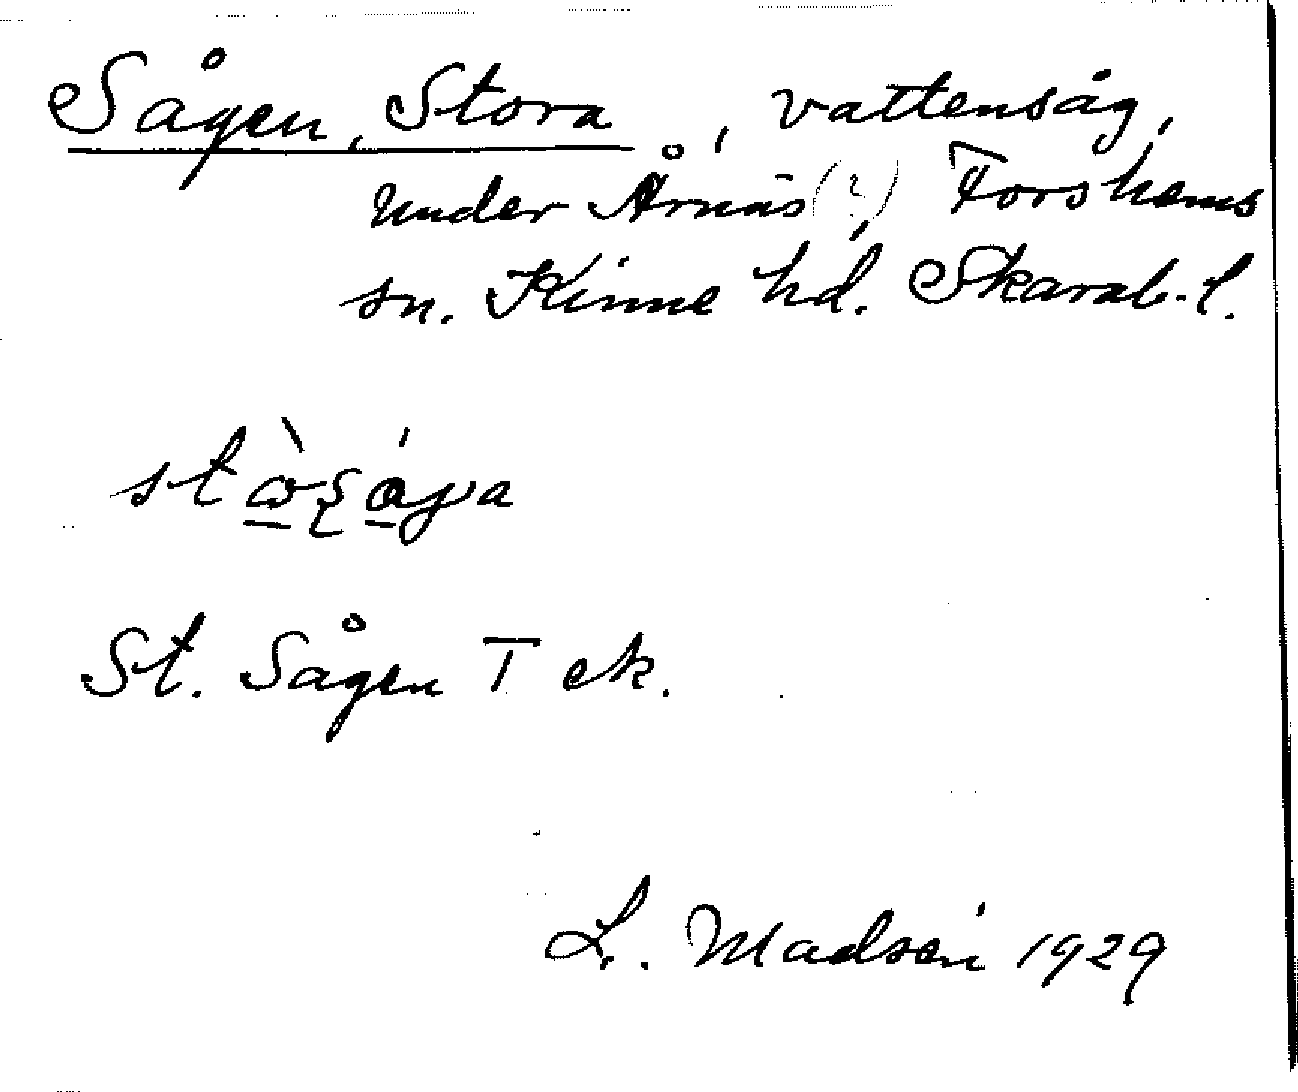 Sågen, Stora, vattensåg,
under Årnäs (?), Forshems
sn. Kinne hd. Skarab. l.
St. Sågen T ek.
L. Madsén 1929